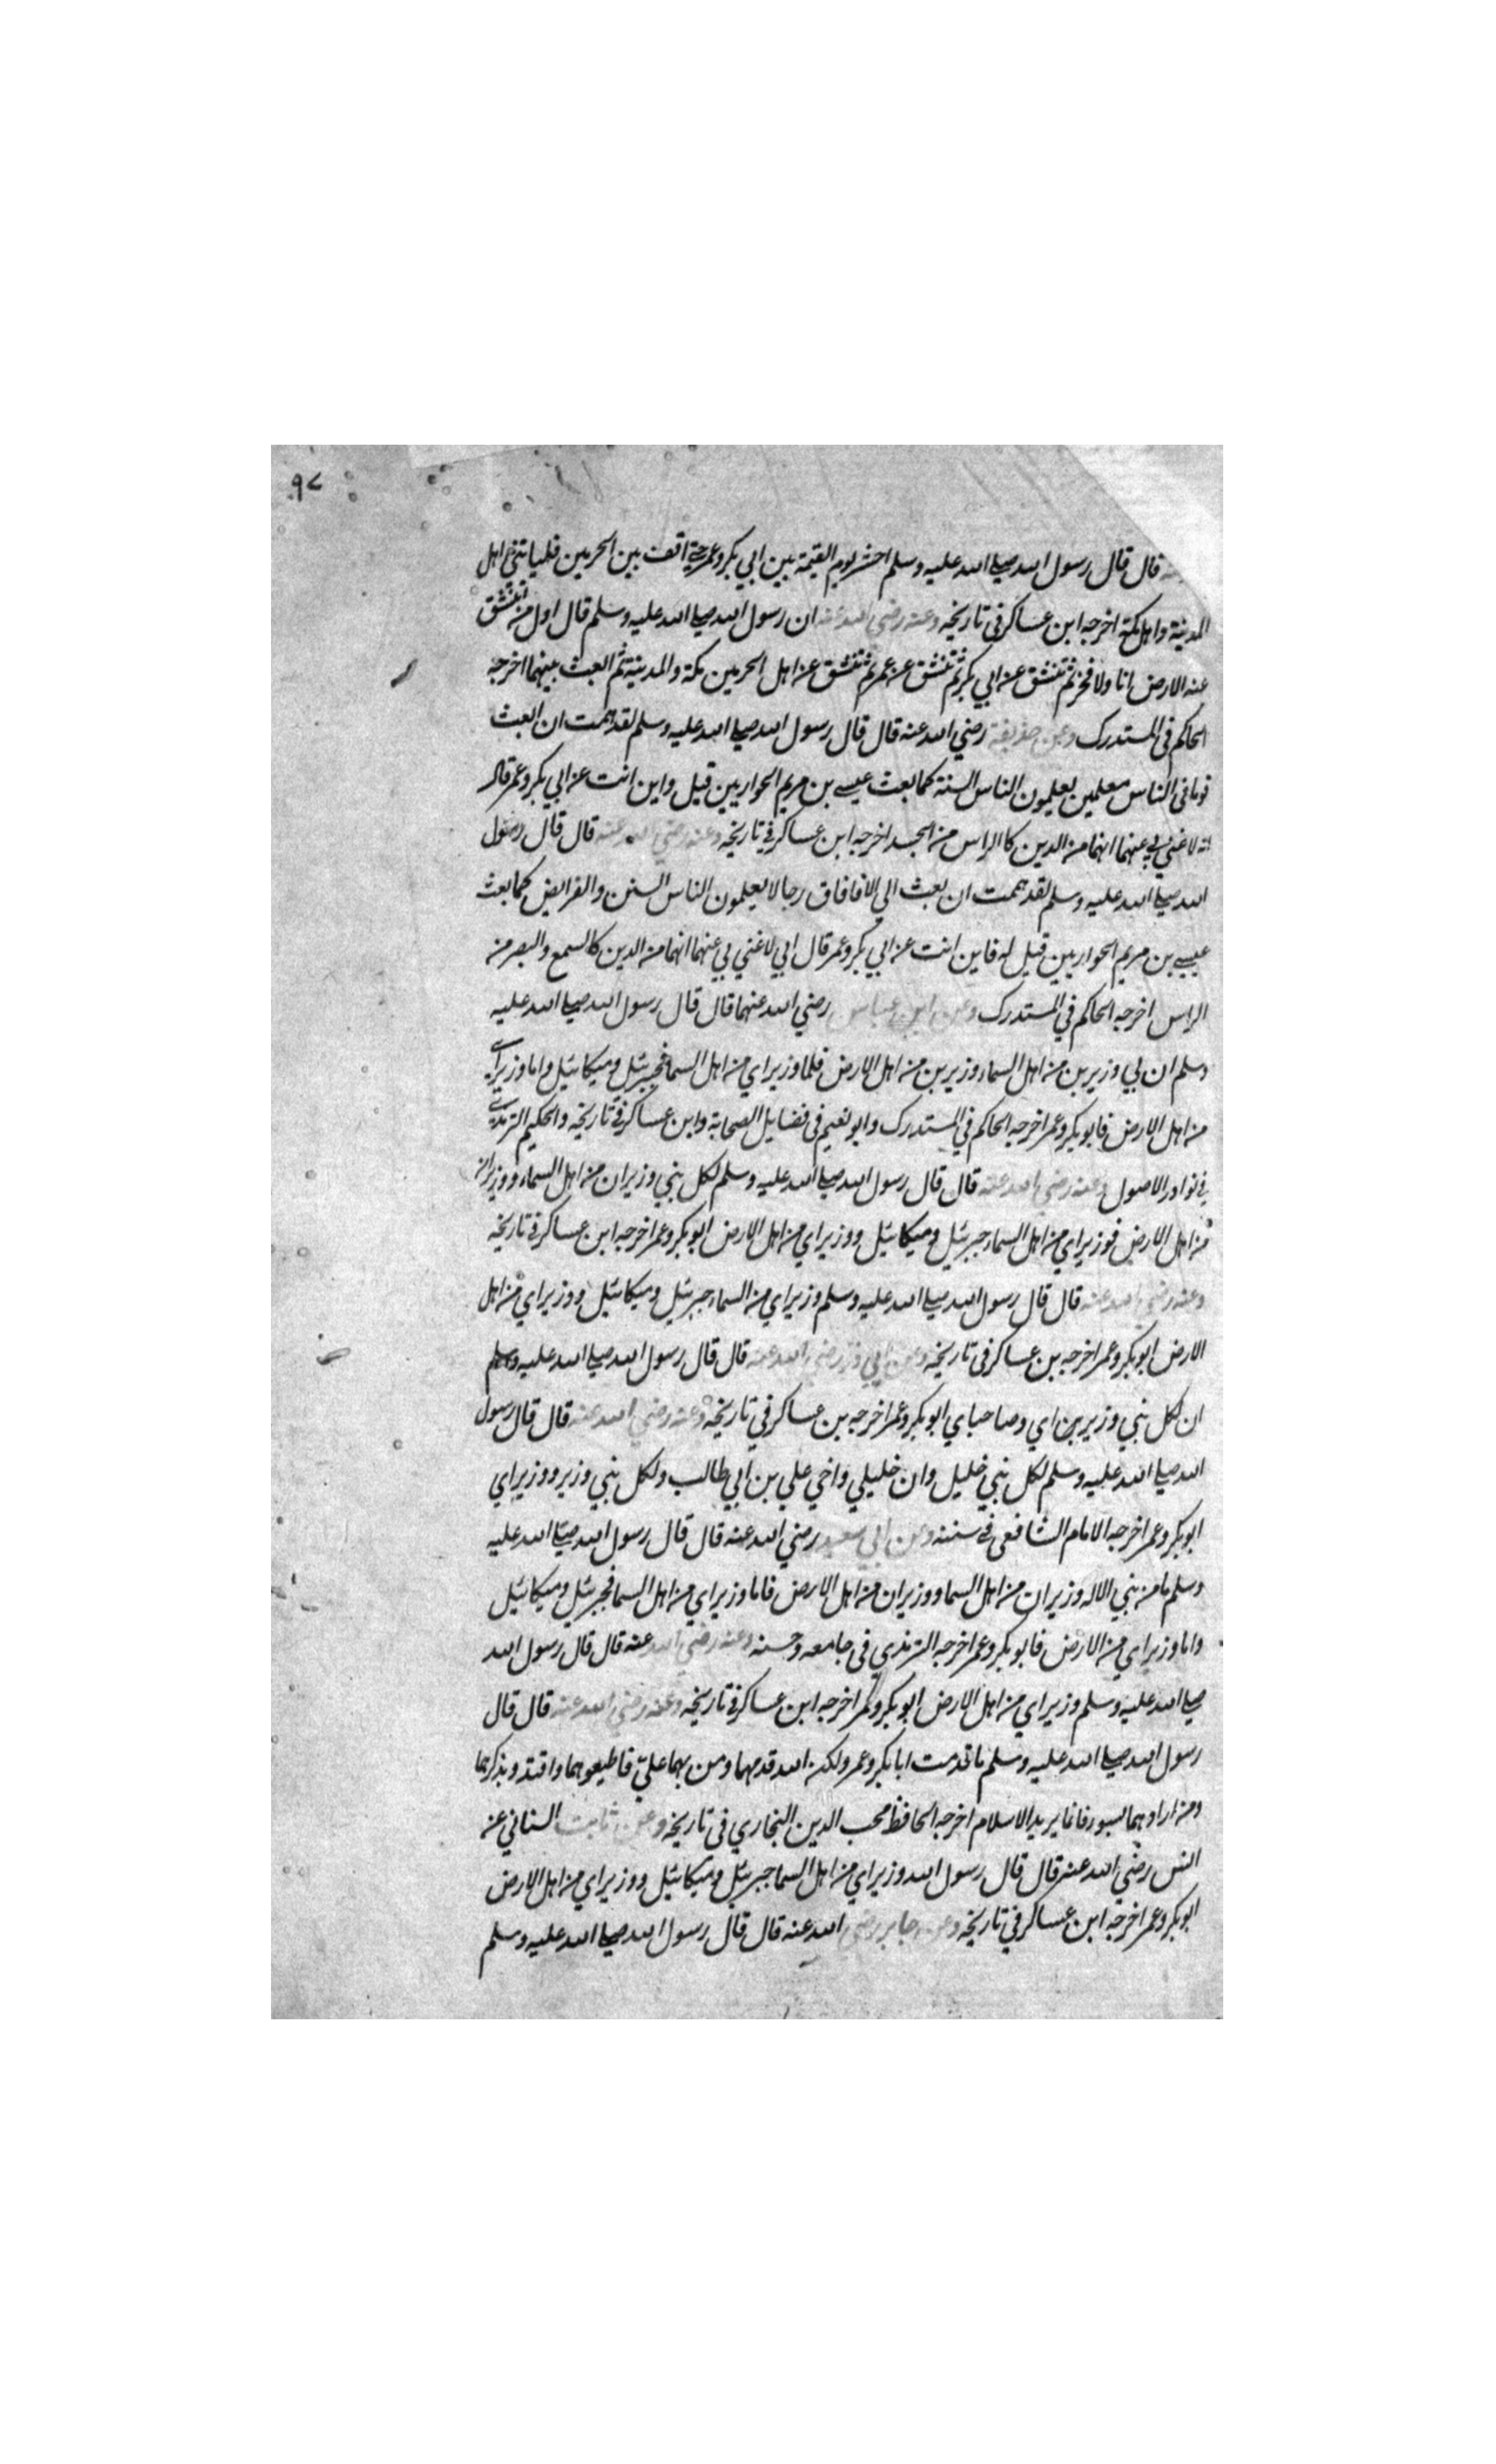 ٩٧
قال قال رسول الله صلى الله عليه وسلم احشر يوم القيمة بين ابي بكر وعمر حتى اقف بين الحرمين فلياتني اهل
المدينة واهل مكة اخرجه ابن عساكر في تاريخه وعنه رضي الله عنه ان رسول الله صلى الله عليه وسلم قال اول من تنشق
عنه الارض انا ولا فخر ثم تنشق عن ابي بكر ثم تنشق عن عمر ثم تنشق عن اهل الحرمين مكة والمدينة ثم ابعث بينهما اخرجه
الحاكم في المستدرك وعن حذيفة رضي الله عنه قال قال رسول الله صلى الله عليه وسلم لقد هممت ان ابعث
قوما في الناس معلمين يعلمون الناس السنة كما بعث عيسى بن مريم الحواريين قيل واين انت عن ابي بكر وعمر قال
انه لا غنى بي عنهما انهما من الدين كالراس من الجسد اخرجه ابن عساكر في تاريخه وعنه رضي الله عنه قال قال رسول
الله صلى الله عليه وسلم لقد هممت ان بعث الى الافافاق رجالا يعلمون الناس السنن والفرايض كما بعث
عيسى بن مريم الحواريين قيل له فاين انت عن ابي بكر وعمر قال اني لا غنى بي عنهما انهما من الدين كالسمع والبصر من
الراس اخرجه الحاكم في المستدرك وعن ابن عباس رضي الله عنهما قال قال رسول الله صلى الله عليه
وسلم ان لي وزيرين من اهل السماء وزيرين من اهل الارض فلما وزيراي من اهل السما فجبرئيل وميكائيل واما وزيراي
من اهل الارض فابو بكر وعمر اخرجه الحاكم في المستدرك وابو نعيم في فضايل الصحابة وابن عساكر في تاريخه والحكيم الترمذي
في نوادر الاصول وعنه رضي الله عنه قال قال رسول الله صلى الله عليه وسلم لكل نبي وزيران من اهل السماء ووزيران
من اهل الارض فوزيراي من اهل السماء جبرئيل وميكائيل ووزيراي من اهل الارض ابو بكر وعمر اخرجه ابن عساكر في تاريخه
وعنه رضي الله عنه قال قال رسول الله صلى الله عليه وسلم وزيراي من السماء جبرئيل وميكائيل ووزيراي من اهل
الارض ابو بكر وعمر اخرجه بن عساكر في تاريخه وعن ابي ذر رضي الله عنه قال قال رسول الله صلى الله عليه وسلم
ان لكل نبي وزيرين اي وصاحباي ابو بكر وعمر اخرجه بن عساكر في تاريخه وعنه رضي الله عنه قال قال رسول
الله صلى الله عليه وسلم لكل نبي خليل وان خليلي واخي علي بن ابي طالب ولكل نبي وزير ووزيراي
ابو بكر وعمر اخرجه الامام الشافعي في سننه وعن ابي سعيد رضي الله عنه قال قال رسول الله صلى الله عليه
وسلم ما من نبي الا له وزيران من اهل السما ووزيران من اهل الارض فاما وزيراي من اهل السما فجبرئيل وميكائيل
واما وزيراي من الارض فابو بكر وعمر اخرجه الترمذي في جامعه وحسنه وعنه رضي الله عنه قال قال رسول الله
صلى الله عليه وسلم وزيراي من اهل الارض ابو بكر وعمر اخرجه ابن عساكر في تاريخه وعنه رضي الله عنه قال قال
رسول الله صلى الله عليه وسلم ما قدمت ابا بكر وعمر ولكن الله قدمهما ومن بهما علي فاطيعوهما واقتدو بذكرهما
ومن ارادهما بسو فانما يريد الاسلام اخرجه الحافظ محب الدين النجاري في تاريخه وعن ثابت البناني عن
انس رضي الله عنه قال قال رسول الله وزيراي من اهل السما جبرئيل وميكائيل ووزيراي من اهل الارض
ابو بكر وعمر اخرجه ابن عساكر في تاريخه وعن جابر رضي الله عنه قال قال رسول الله صلى الله عليه وسلم